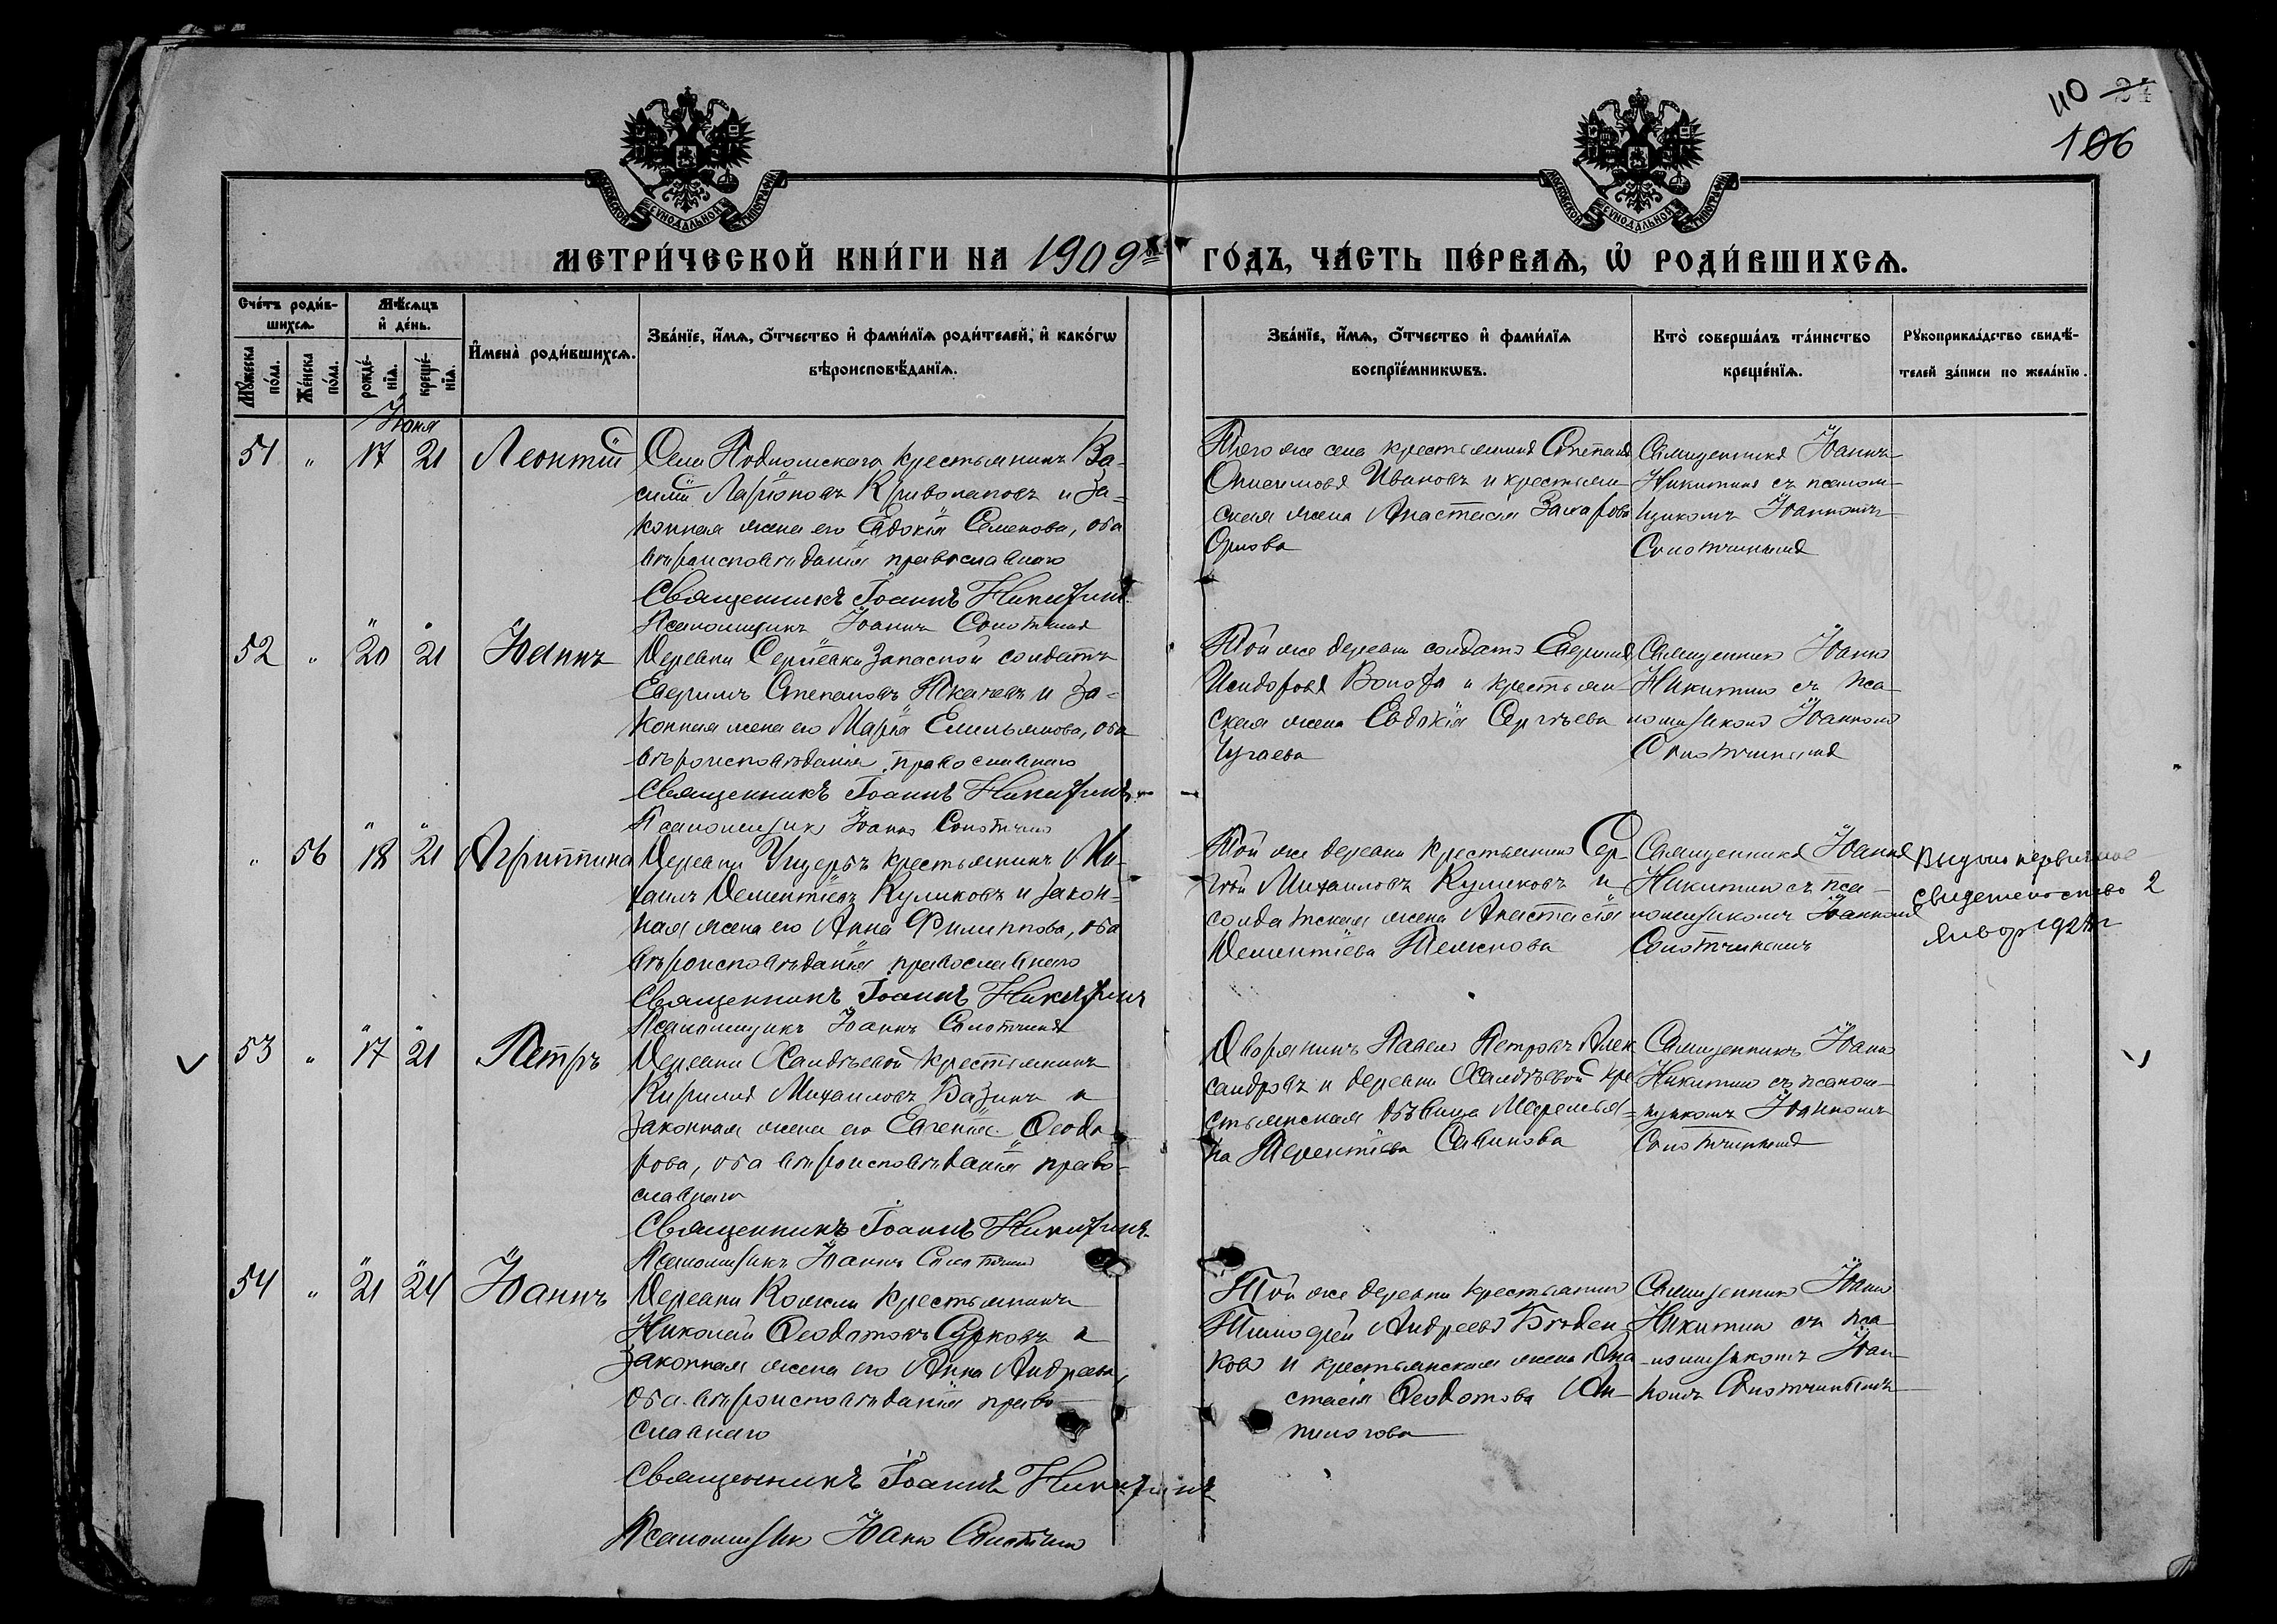 110 24
106
МОСКОВСКОЙ СѴНОДАЛЬНОЙ ТИПОГРАФІИ
МОСКОВСКОЙ СѴНОДАЛЬНОЙ ТИПОГРАФІИ
МЕТРИ́ЧЕСКОЙ КНИ́ГИ НА 1909й ГО́ДЪ, ЧА́СТЬ ПЕ́РВАѦ, Ѡ҆ РОДИ́ВШИХСѦ.
Сче́тъ роди́в-
шихсѧ.
Мѣ́сѧцъ
и҆ де́нь.
Мꙋ́жеска по́ла.
Же́нска по́ла.
рожде́-
нїѧ.
креще́-
нїѧ.
И҆мена̀ роди́вшихсѧ.
Зва́нїе, и҆́мѧ, ѻ҆́тчество и҆ фами́лїѧ роди́телей, и҆ како́гѡ
вѣроисповѣ́данїѧ.
Зва́нїе, и҆́мѧ, ѻ҆́тчество и҆ фами́лїѧ
воспрїе́мникѡвъ.
Кто̀ соверша́лъ та́инство
креще́нїѧ.
Рꙋкоприкла́дство свидѣ́-
телей за́писи по жела́нїю.
Іюня
51 " 17 21 Леонтій
Села крестьянинъ Ва-
силій Ларіоновъ и за-
конная жена его Евдокія Семенова, оба
вѣроисповѣданія православнаго
Священникъ Іоаннъ Никитинъ
Псаломщикъ Іоаннъ
Того же села крестьянинъ Степанъ
Онисимовъ Ивановъ и крестьян-
ская жена Анастасія Захарова
Орлова
Священникъ Іоаннъ
Никитинъ съ псалом-
щикомъ Іоанномъ
52 " 20 21 Іоаннъ
Деревни Сергіевки запасной солдатъ
Степановъ Ткачевъ и за-
конная жена его Марія Емельянова, оба
вѣроисповѣданія православнаго
Священникъ Іоаннъ Никитинъ
Псаломщикъ Іоаннъ
Той же деревни солдатъ
Исидоровъ и крестьян-
ская жена Евдокія Сергѣева
Чугаева
Священникъ Іоаннъ
Никитинъ съ пса-
ломщикомъ Іоанномъ
" 56 18 21 Агриппина
Деревни Ущеръ крестьянинъ Ми-
хаилъ Дементіевъ Куликовъ и закон-
ная жена его Анна Филиппова, оба
вѣроисповѣданія православнаго
Священникъ Іоаннъ Никитинъ
Псаломщикъ Іоаннъ
Той же деревни крестьянинъ Сер-
гѣй Михаиловъ Куликовъ и
солдатская жена Анастасія
Дементіева
Священникъ Іоаннъ
Никитинъ съ пса-
ломщикомъ Іоанномъ
Выдано первичное
свидетельство 2
январ
53 " 17 21 Петръ
Деревни крестьянинъ
Кириллъ Михаиловъ и
законная жена его Евгенія Ѳеодо-
рова, оба вѣроисповѣданія право-
славнаго
Священникъ Іоаннъ Никитинъ
Псаломщикъ Іоаннъ
Дворянинъ Павелъ Петровъ Алек-
сандровъ и деревни кре-
стьянская дѣвица
на Терентіева Савинова
Священникъ Іоаннъ
Никитинъ съ псалом-
щикомъ Іоанномъ
54 " 21 24 Іоаннъ
Деревни крестьянинъ
Николай Ѳеодотовъ Сурковъ и
законная жена его Анна Андреева,
оба вѣроисповѣданія право-
славнаго
Священникъ Іоаннъ Никитинъ
Псаломщикъ Іоаннъ
Той же деревни крестьянинъ
Тимофей Андреевъ
и крестьянская жена Ана-
стасія Ѳеодотова
Священникъ Іоаннъ
Никитинъ съ пса-
ломщикомъ Іоан-
номъ